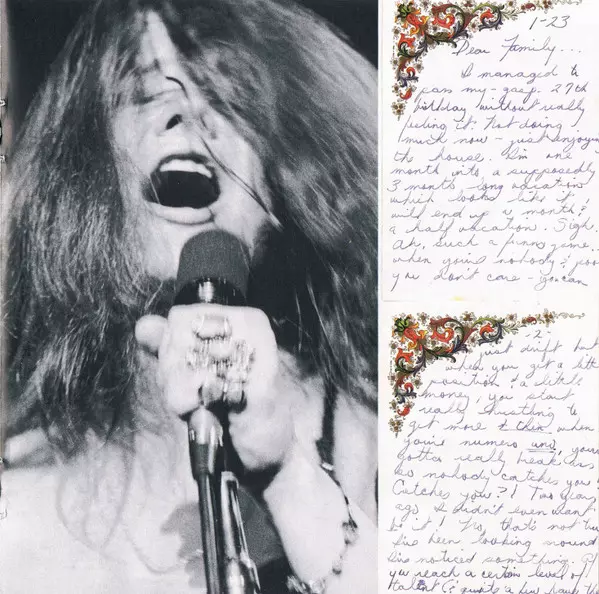 1-23
Dear Family...
I managed to
pass my - gasp - 27th
birthday without really
feeling it. Not doing
much now - just enjoying
the house. I'm one
month into, a supposedly
3 month long vacation
which looks like it
will end up a month &
a half vacation. Sigh.
Ah, such a funny game..
when you're nobody & poor
you don't care - you can
-2-
just drift but
when you get a little
position & a little
money, you start
really hustling to
get more & then when
you're numero uno, you
gotta really break ass
so nobody catches you!
Catches you?! Two years
ago I didn't even want to
be it! No, that's not true
I've been looking around
I've noticed something. After
you reach a certain level of
talent (& quite a few have that